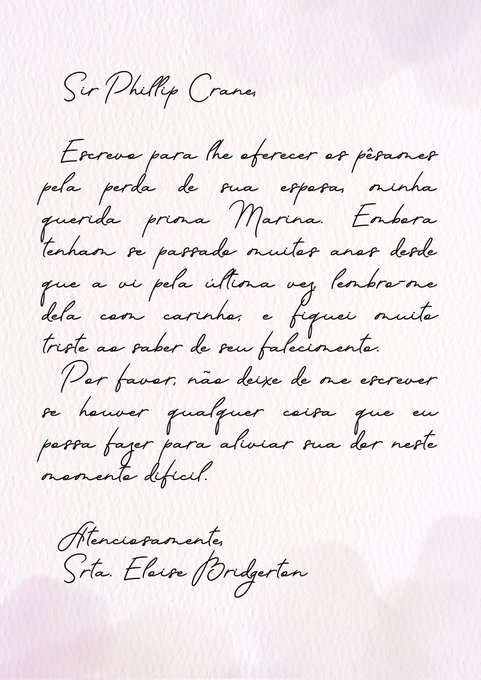 Sir Phillip Crane,
Escrevo para lhe oferecer os pêsames
pela perda de sua esposa, minha
querida prima Marina. Embora
tenham se passado muitos anos desde
que a vi pela última vez, lembro-me
dela com carinho, e fiquei muito
triste ao saber de seu falecimento.
Por favor, não deixe de me escrever
se houver qualquer coisa que eu
possa fazer para aliviar sua dor neste
momento difícil.
Atenciosamente,
Srta. Eloise Bridgerton